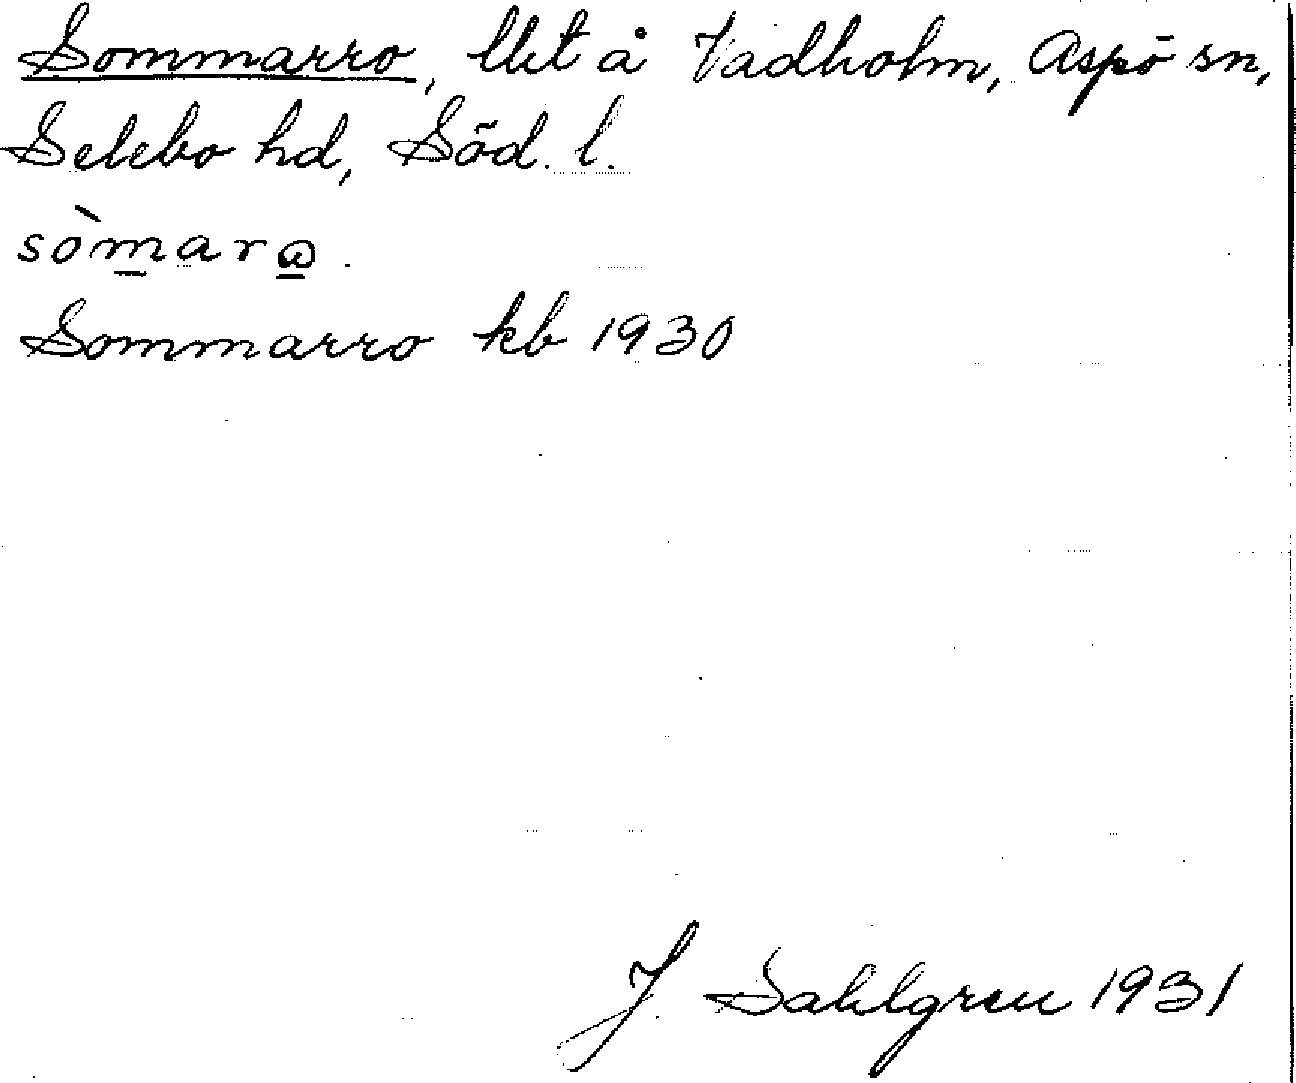 Sommarro, lht å Vadholm, Aspö sn,
Selebo hd, Söd. l.
sòmarω.
Sommarro kb 1930
J. Sahlgren 1931